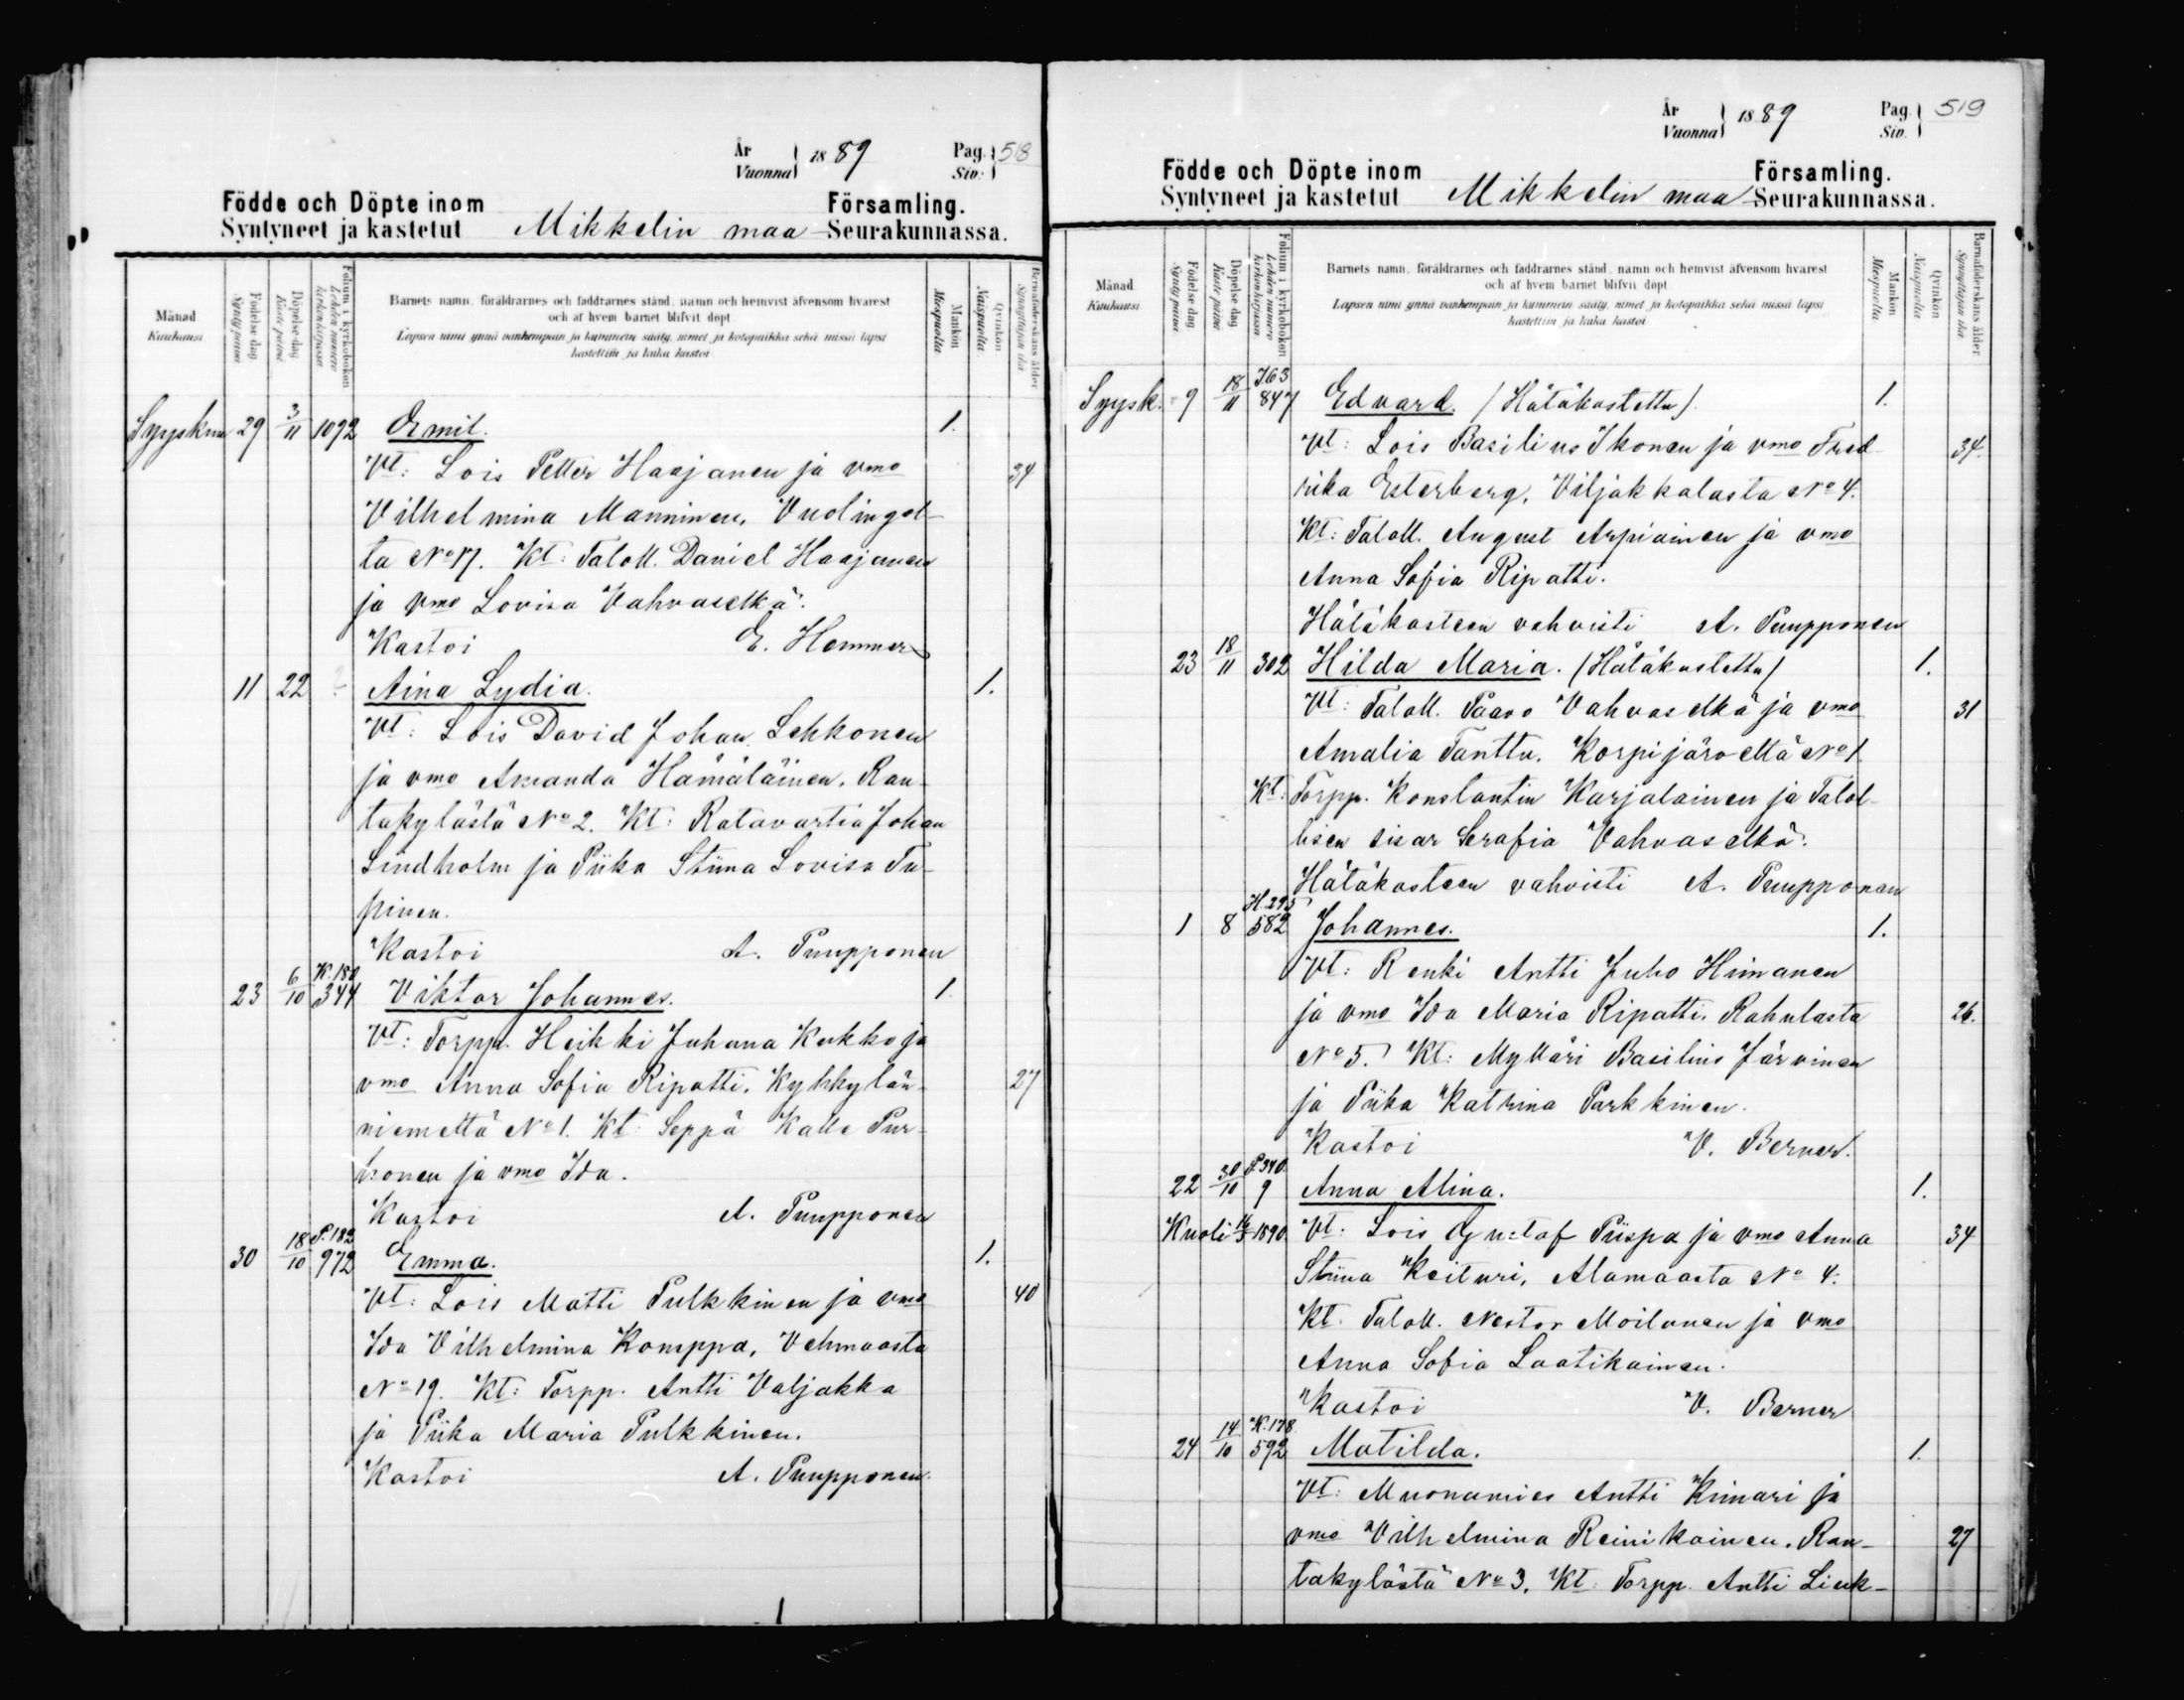 År
Vuonna 1889 Pag. 518
Siv.
Födde och Döpte inom Församling.
Syntyneet ja kastetut Mikkelin maa Seurakunnassa.
Månad
Kuukausi
Födelse dag
Synty päivä
Döpelse dag
Kaste päivä
Folium i kyrkoboken
Lehden numero
kirkonkirjassa
Barnets namn, föräldrarnes och faddrarnes stånd, namn och hemvist äfvensom hvarest
och af hvem barnet blifvit döpt
Lapsen nimi ynnä vanhempain ja kummein sääty, nimet ja kotopaikka sekä missä lapsi
kastettiin ja kuka kastoi
Mankön
Miespuolta
Qvinkön
Naispuolta
Barnaföderskans ålder
Synnyttäjän ikä
Syyskuu 29 3/11 1092 Emil. 1.
Vt: Lois Petter Haajanen ja vmo 34
Vilhelmina Manninen, Vuolingol-
ta No 17. Kt: Taloll. Daniel Haajanen
ja vmo Lovisa Vahvaselkä.
Kastoi E. Hemmer
11 22 ? Aina Lydia. 1.
Vt: Lois David Johan Lehkonen
ja vmo Amanda Hämäläinen, Ran-
takylästä No 2. Kt: Ratavartia Johan
Lindholm ja Piika Stiina Lovisa Tu-
pinen.
Kastoi A. Puupponen
23 6/10 K. 180
344 Viktor Johannes. 1
Vt: Torpp. Heikki Juhana Kukko ja
vmo Anna Sofia Ripatti, Kyhkylän- 27
niemeltä No 1. Kt: Seppä Kalle Pur-
honen ja vmo Ida.
Kastoi A. Puupponen
30 18/10 P. 182
972 Emma. 1.
Vt: Lois Matti Pulkkinen ja vmo 40
Ida Vilhelmina Komppa, Vehmaasta
No 19. Kt: Torpp. Antti Valjakka
ja Piika Maria Pulkkinen.
Kastoi A. Puupponen.
År
Vuonna 1889 Pag. 519
Siv.
Födde och Döpte inom Församling.
Syntyneet ja kastetut Mikkelin maa Seurakunnassa.
Månad
Kuukausi
Födelse dag
Synty päivä
Döpelse dag
Kaste päivä
Folium i kyrkoboken
Lehden numero
kirkonkirjassa
Barnets namn, föräldrarnes och faddrarnes stånd, namn och hemvist äfvensom hvarest
och af hvem barnet blifvit döpt
Lapsen nimi ynnä vanhempain ja kummein sääty, nimet ja kotopaikka sekä missä lapsi
kastettiin ja kuka kastoi
Mankön
Miespuolta
Qvinkön
Naispuolta
Barnaföderskans ålder
Synnyttäjän ikä
Syysk. 9 18/11 I. 63
847 Edvard. (Hätäkastettu). 1.
Vt: Lois Basilius Ikonen ja vmo Fred- 34.
rika Esterberg, Viljakkalasta No 4.
Kt: Taloll. August Arpiainen ja vmo
Anna Sofia Ripatti.
Hätäkasteen vahvisti A. Puupponen
23 18/11 302 Hilda Maria. (Hätäkastettu) 1.
Vt: Taloll. Paavo Vahvaselkä ja vmo 31
Amalia Tanttu, Korpijärveltä No 1.
Kt: Torpp. Konstantin Karjalainen ja Talol-
lisen sisar Serafia Vahvaselkä.
Hätäkasteen vahvisti A. Puupponen
1 8 H. 295
582 Johannes. 1.
Vt: Renki Antti Juho Himanen
ja vmo Ida Maria Ripatti, Rahulasta 26.
No 5. Kt: Mylläri Basilius Järvinen
ja Piika Katriina Parkkinen.
Kastoi V. Berner.
22 30/10 P. 340
9 Anna Alina. 1.
Kuoli 16/3 1890 Vt: Lois Gustaf Piispa ja vmo Anna 34
Stiina Keituri, Alamaasta No 4.
Kt: Taloll. Nestor Moilanen ja vmo
Anna Sofia Laatikainen.
Kastoi V. Berner
24 14/10 K. 178
592 Matilda. 1.
Vt: Muonamies Antti Kimari ja
vmo Vilhelmina Reinikainen, Ran- 27
takylästä No 3. Kt: Torpp. Antti Liuk-